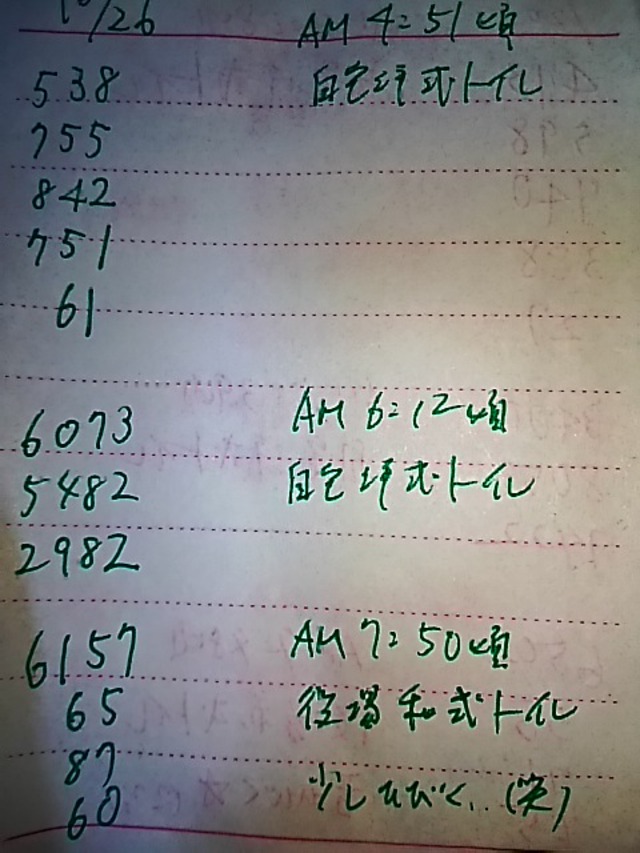 10/26 AM 4:51頃
538 自宅洋式トイレ
755
842
751
61
6073 AM 6:12頃
5482 自宅洋式トイレ
2982
6157 AM 7:50頃
65 役場和式トイレ
87
60 少しひびく..(笑)